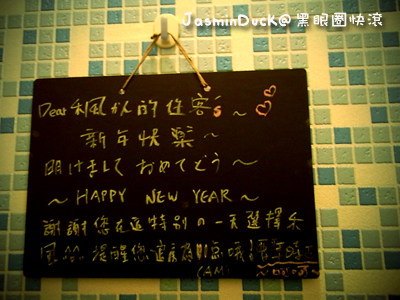 JasminDuck@黑眼圈快滾
Dear 和風的住客s~
新年快樂~
明けまして おめでとう~
~ HAPPY NEW YEAR ~
謝謝您在這特別の一天選擇和
風 提醒您 退房
(AM